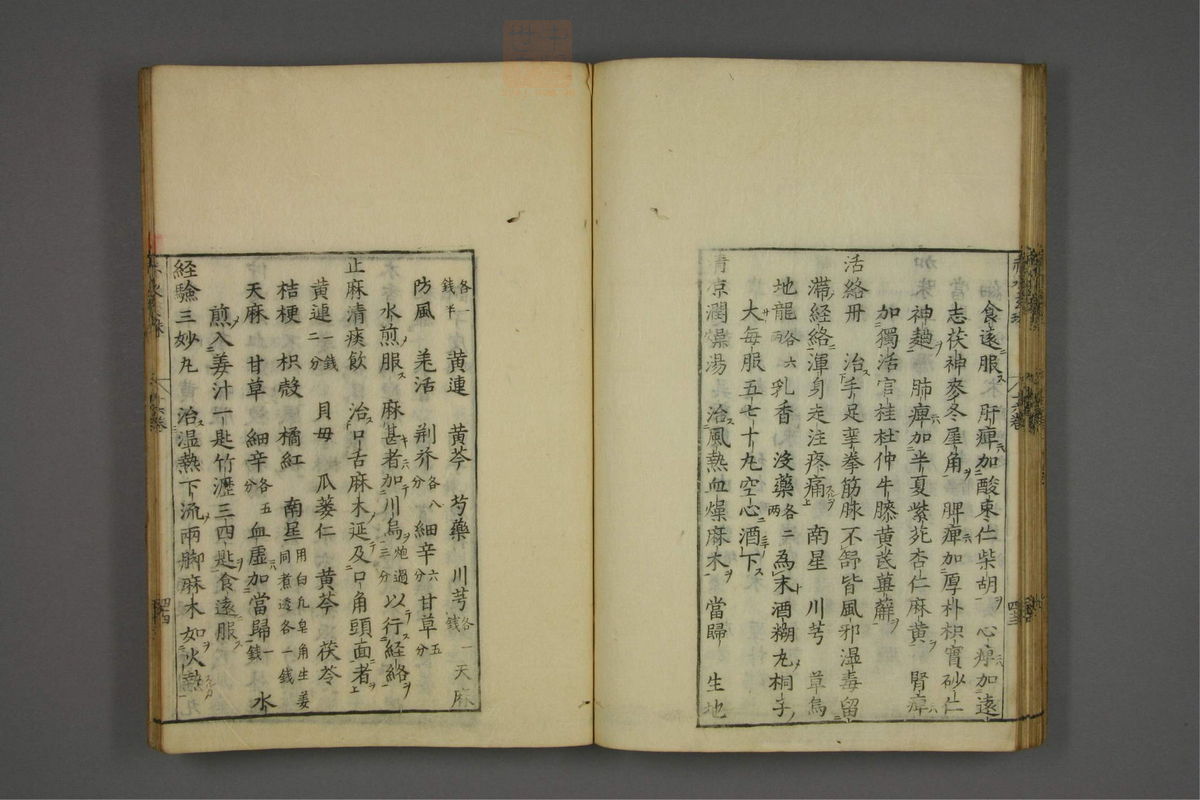 食遠服 肝痺加酸棗仁柴胡 心痺加遠
志茯神麥冬犀角 脾痺加厚朴枳實砂仁
神麯 肺痺加半夏紫菀杏仁麻黃 腎痺
加獨活官桂杜仲牛膝黃茋萆薢
活絡丹 治手足攣拳筋脉不舒皆風邪濕毒留
滯經絡渾身走注疼痛 南星 川芎 草烏
地龍各六兩 乳香 沒藥各二兩 為末酒糊丸桐子
大每服五七十丸空心酒下
清凉潤燥湯 治風熱血燥麻木 當歸 生地
各一錢半 黃連 黃芩 芍藥 川芎各一錢 天麻
防風 羗活 荆芥各八分 細辛六分 甘草五分
水煎服 麻甚者加川烏炮過三分 以行経絡
止麻清痰飲 治口舌麻木延及口角頭面者
黃連一錢二分 貝母 瓜蔞仁 黃芩 茯苓
桔梗 枳殼 橘紅 南星用白凢皂角生姜同煮透各一錢
天麻 甘草 細辛各五分 血虛加當歸一錢 水
煎入姜汁一匙竹瀝三四匙食遠服
経驗三妙丸 治濕熱下流兩脚麻木如火熱